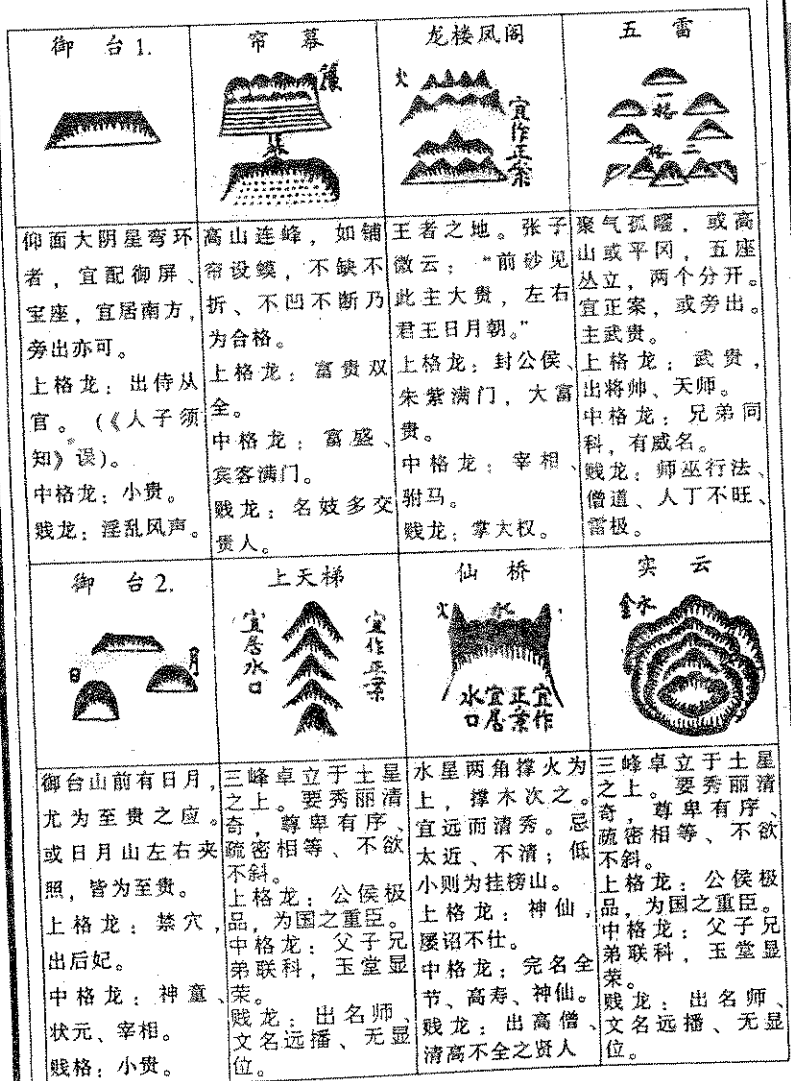 御 台 1.
仰面大阴星弯环
者，宜配御屏、
宝座，宜居南方，
旁出亦可。
上格龙：出侍从
官。（《人子须
知》误）。
中格龙：小贵。
贱龙：淫乱风声。
帘 幕
簾
幕
高山连峰，如铺
帘设蟆，不缺不
折、不凹不断乃
为合格。
上格龙：富贵双
全。
中格龙：富盛、
宾客满门。
贱龙：名妓多交
贵人。
龙楼凤阁
火
宜作正案
王者之地。张子
微云：“前砂见
此主大贵，左右
君王日月朝。”
上格龙：封公侯、
朱紫满门，大富
贵。
中格龙：宰相、
驸马。
贱龙：掌大权。
五 雷
一格
格二
聚气孤曜，或高
山或平冈，五座
丛立，两个分开。
宜正案，或旁出。
主武贵。
上格龙：武贵，
出将帅、天师。
中格龙：兄弟同
科，有威名。
贱龙：师巫行法、
僧道、人丁不旺、
雷极。
御 台 2.
日
月
御台山前有日月，
尤为至贵之应。
或日月山左右夹
照，皆为至贵。
上格龙：禁穴，
出后妃。
中格龙：神童、
状元、宰相。
贱格：小贵。
上天梯
宜居水口
宜作正案
三峰卓立于土星
之上。要秀丽清
奇，尊卑有序、
疏密相等、不欲
不斜。
上格龙：公侯极
品，为国之重臣。
中格龙：父子兄
弟联科，玉堂显
荣。
贱龙：出名师、
文名远播、无显
位。
仙 桥
火
水
宜作
正案
宜居
水口
水星两角撑火为
上，撑木次之。
宜远而清秀。忌
太近、不清；低
小则为挂榜山。
上格龙：神仙，
屡诏不仕。
中格龙：完名全
节、高寿、神仙。
贱龙：出高僧、
清高不全之贤人
实 云
金水
三峰卓立于土星
之上。要秀丽清
奇，尊卑有序、
疏密相等、不欲
不斜。
上格龙：公侯极
品，为国之重臣。
中格龙：父子兄
弟联科，玉堂显
荣。
贱龙：出名师、
文名远播、无显
位。